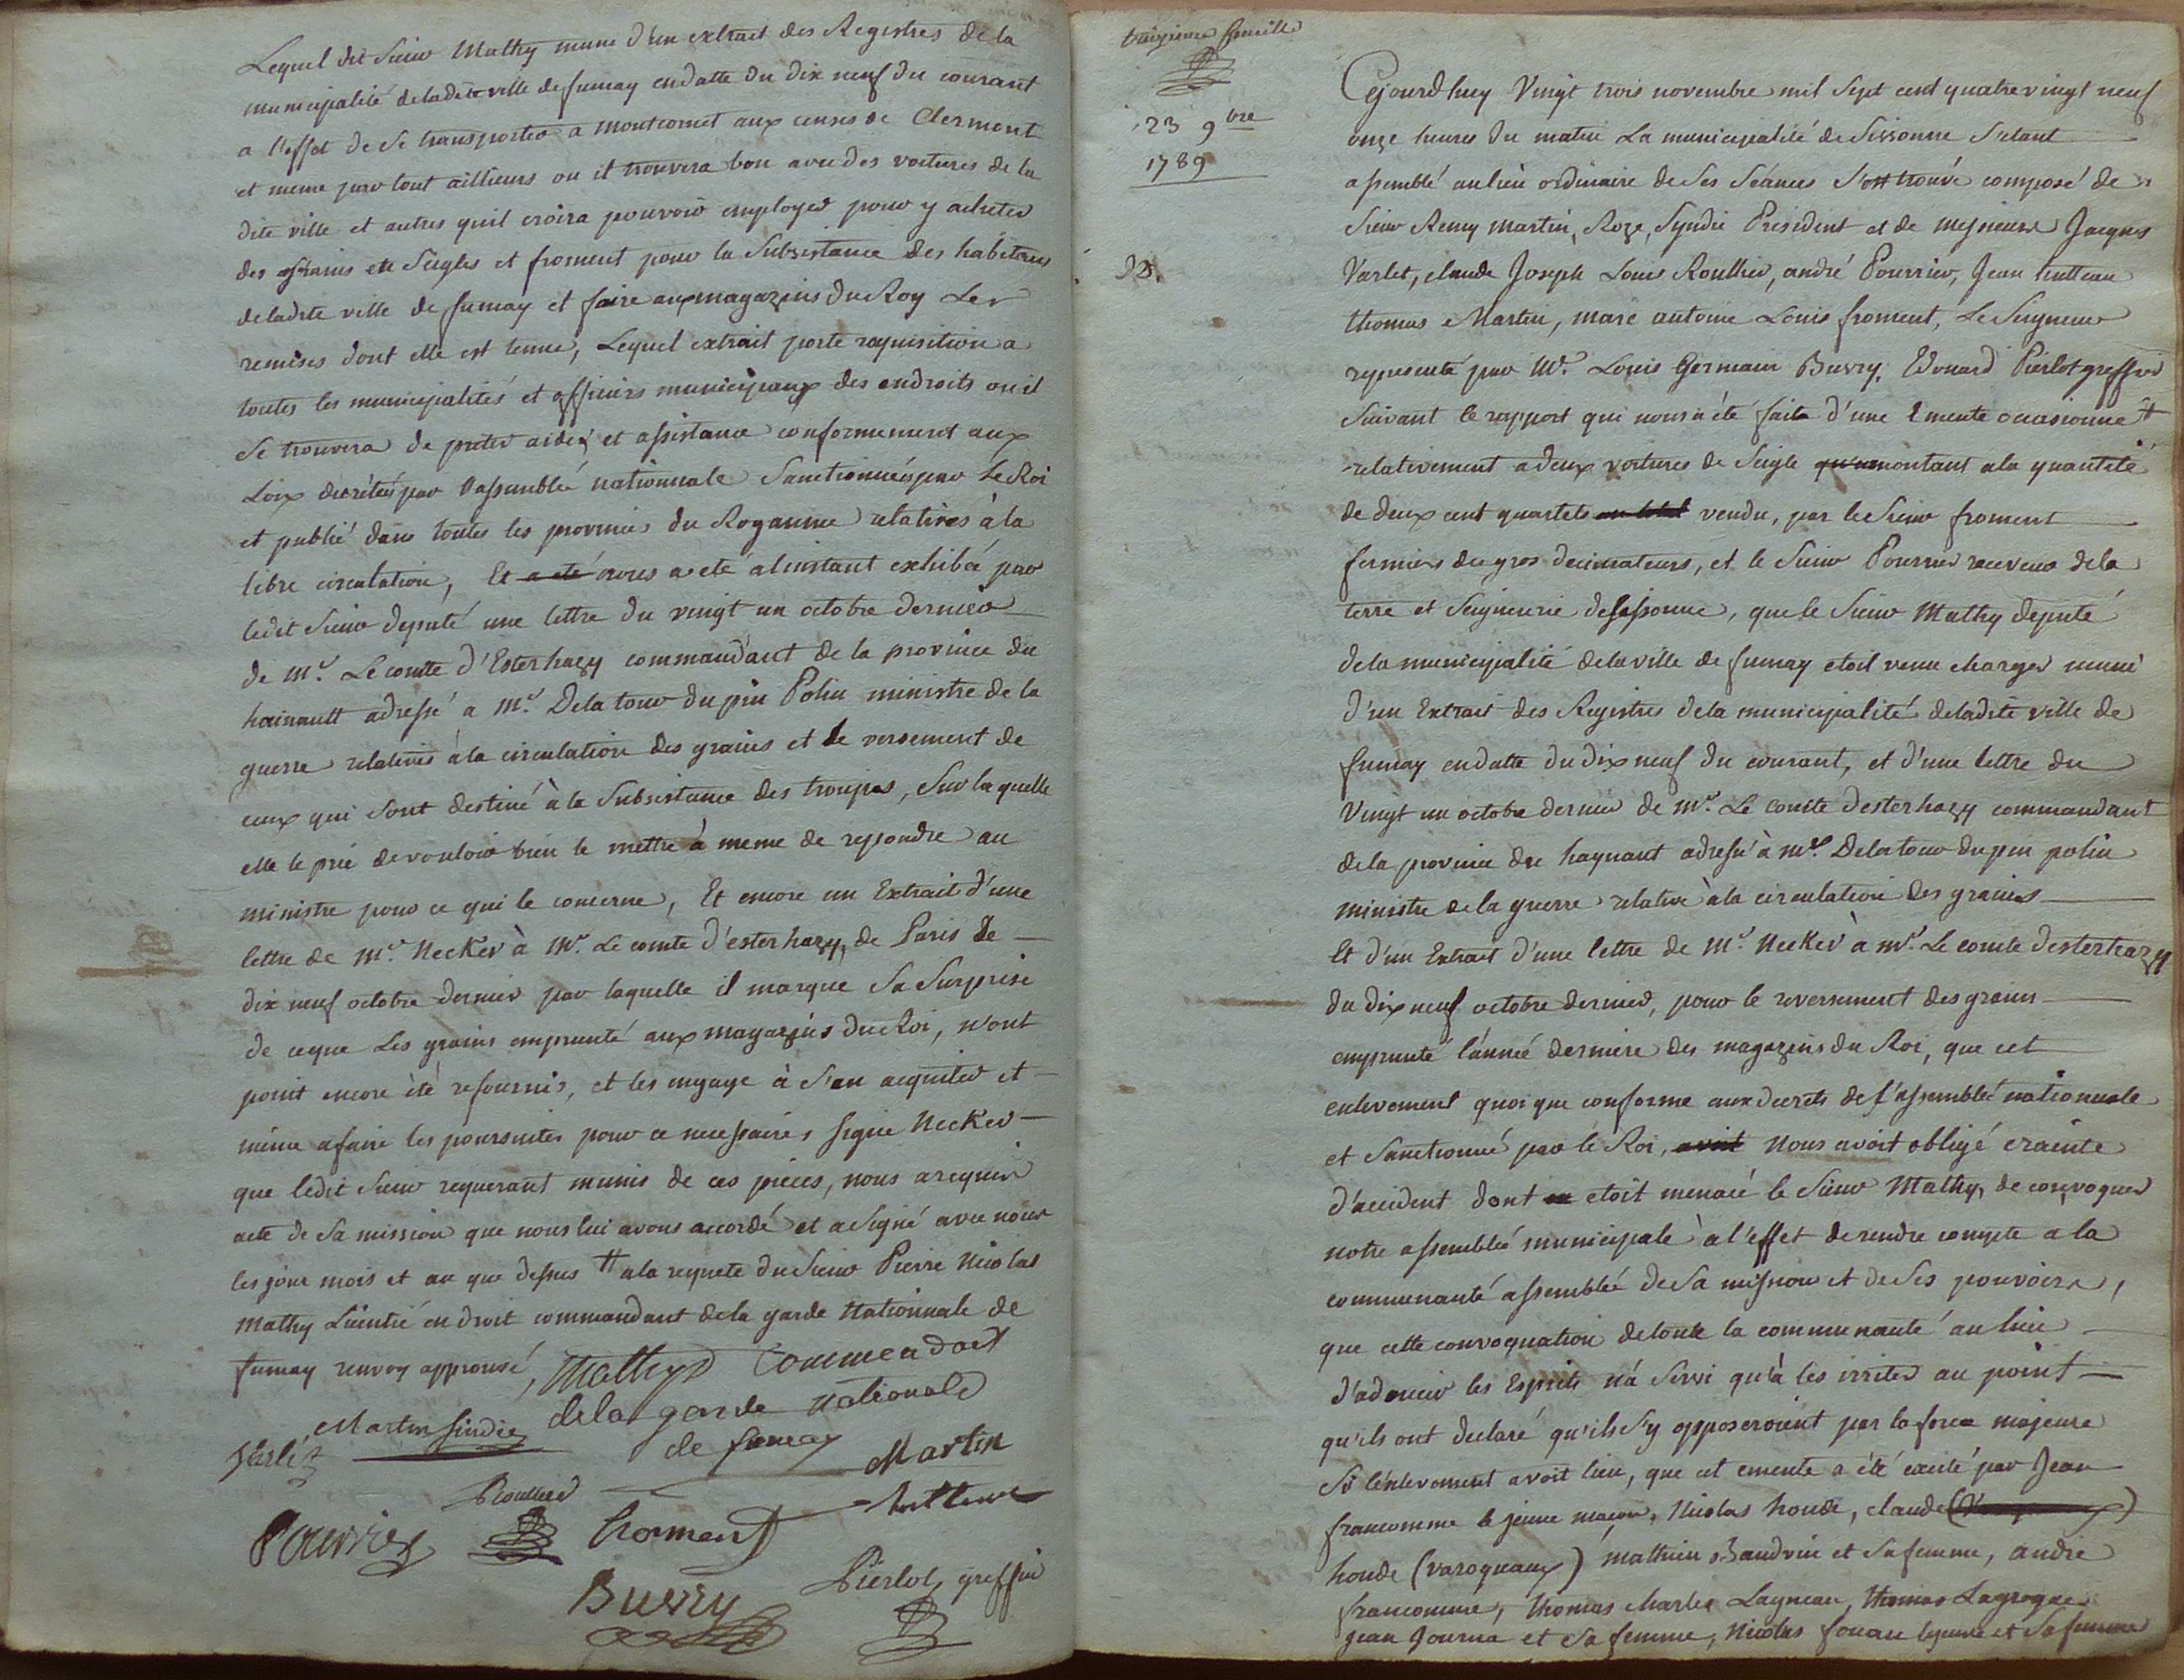 Lequel dit Sieur Mathy muni d'un extrait des Registres de la
municipalité deladite ville defumay endatte du dix neuf du courant
a l'effet de Se transporter a montcornet aux censes de Clermont
et meme par tout aillieurs ou il trouvera bon avec des voitures de la
dite ville et autres quil croira pouvoir employer pour y acheter
des grains en Seigles et froment pour la Subsistance des habitans
deladite ville de fumay et faire aux magazins du Roy Les
remises dont elle est tenue, Lequel extrait porte requisition a
toutes les municipalités et officiers municipaux des endroits ou il
Se trouvera de preter aides et assistance conformement aux
Loix decrétées par l'assemblée nationnale Sanctionnées par Le Roi
et publié dans toutes les provinces du Royaume relatives à la
libre circulation, Et a eté nous a eté alinstant exhibée par
ledit Sieur deputé une lettre du vingt un octobre dernier
de Mr. Le comte d'Esterhazy commandant de la province du
hainault adressé a Mr. Dela tour du pin Polin ministre de la
guerre relatives à la circulation des grains et le versement de
ceux qui Sont destiné à la Subsistance des troupes, Sur laquelle
elle le prié de vouloir bien le mettre à meme de repondre au
ministre pour ce qui le concerne, Et encore un Extrait d'une
lettre de Mr. Necker à Mr. Le comte d'esterhazy, de Paris le
dix neuf octobre dernier par laquelle il marque Sa Surprise
de ceque Les grains emprunté aux magazins du Roi, n'ont
point encore été refournis, et les engage à S'en acquiter et
même afaire les poursuites pour ce necessaires signé Necker
que ledit Sieur requerant munis de ces pièces, nous a requis
acte de Sa mission que nous lui avons accordé et a Signé avec nous
les jour mois et an que dessus # ala requete du Sieur Pierre Nicolas
Mathy Licentié en droit commandant dela garde Nationnale de
fumay renvoy approuvé, Mathys Commendant
dela garde nationale
de fumay
Martin sindic
Varlet
Martin
Roullier
hutteau
Pourrier froment
Buvry Pierlot greffier
treizieme feuille
23 9bre
1789
Cejourdhuy Vingt trois novembre mil Sept cent quatre vingt neuf
onze heures du matin La municipalité de Sissonne S'etant
assemblé au lieu ordinaire de Ses Séances S'est trouvé composé de
Sieur Remy Martin, Roze, Syndic Président et de messieurs Jacques
Varlet, claude Joseph Louis Roullier, andré Pourrier, Jean hutteau
thomas Martin, marc antoine Louis froment, Le Seigneur
representé par Mr. Louis Germain Buvry, Edouard Pierlot greffier
Suivant le rapport qui nous a été faite d'une Emeute occasionné #
relativement a deux voitures de Seigle qu'amontant ala quantité
de deux cent quartels au total vendu, par le Sieur froment
fermiers des gros decimateurs, et le Sieur Pourrier receveur dela
terre et Seigneurie desissonne, que le Sieur Mathy deputé
dela municipalité dela ville de fumay etoit venu charger muni
d'un Extrait des Registres dela municipalité deladite ville de
fumay endatte du dix neuf du courant, et d'une lettre du
Vingt un octobre dernier de Mr. Le comte d'esterhazy commandant
dela province du haynaut adressé à Mr. Delatour du pin polin
ministre dela guerre relative à la circulation des grains
Et d'un Extrait d'une lettre de Mr. Necker à Mr. Le comte d'esterhazy
du dix neuf octobre dernier, pour le reversement des grains
emprunté l'année derniere des magazins du Roi, que cet
enlevement quoi que conforme aux decrets de l'assemblée nationnale
et Sanctionné par le Roi, avoit Nous avoit obligé crainte
d'accident dont etoit menacé le Sieur Mathy, de convoquer
notre assemblée municipale à l'effet de rendre compte a la
communauté assemblée de Sa mission et de Ses pouvoirs,
que cette convoquation detoute la communauté au lieu
d'adoucir les Esprits n'á Servi qu'à les irriter au point
qu'ils ont declaré qu'ils S'y opposeroient par la force majeure
Si l'enlevement avoit lieu, que cet emeute a été excité par Jean
francomme le jeune maçon, Nicolas houde, claude
houde (varoquaux) mathieu Baudvin et Sa femme, andre
francomme, thomas charles Lagneau, thomas Lagrogne
jean Journa et Sa femme, Nicolas fouau lejeune et Sa femme